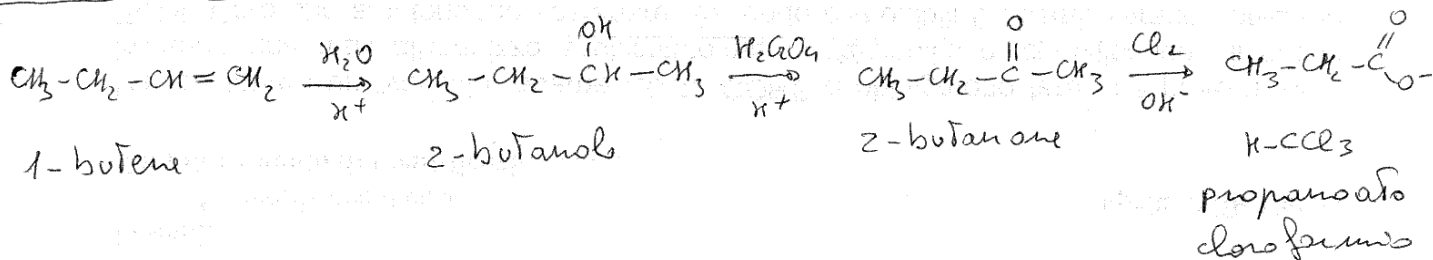 OH O O
CH₃-CH₂-CH=CH₂ H₂O/H⁺ → CH₃-CH₂-CH-CH₃ H₂CrO₄/H⁺ → CH₃-CH₂-C-CH₃ Cl₂/OH⁻ → CH₃-CH₂-C O-
1-butene 2-butanolo 2-butanone H-CCl₃
propanoato
cloroformio